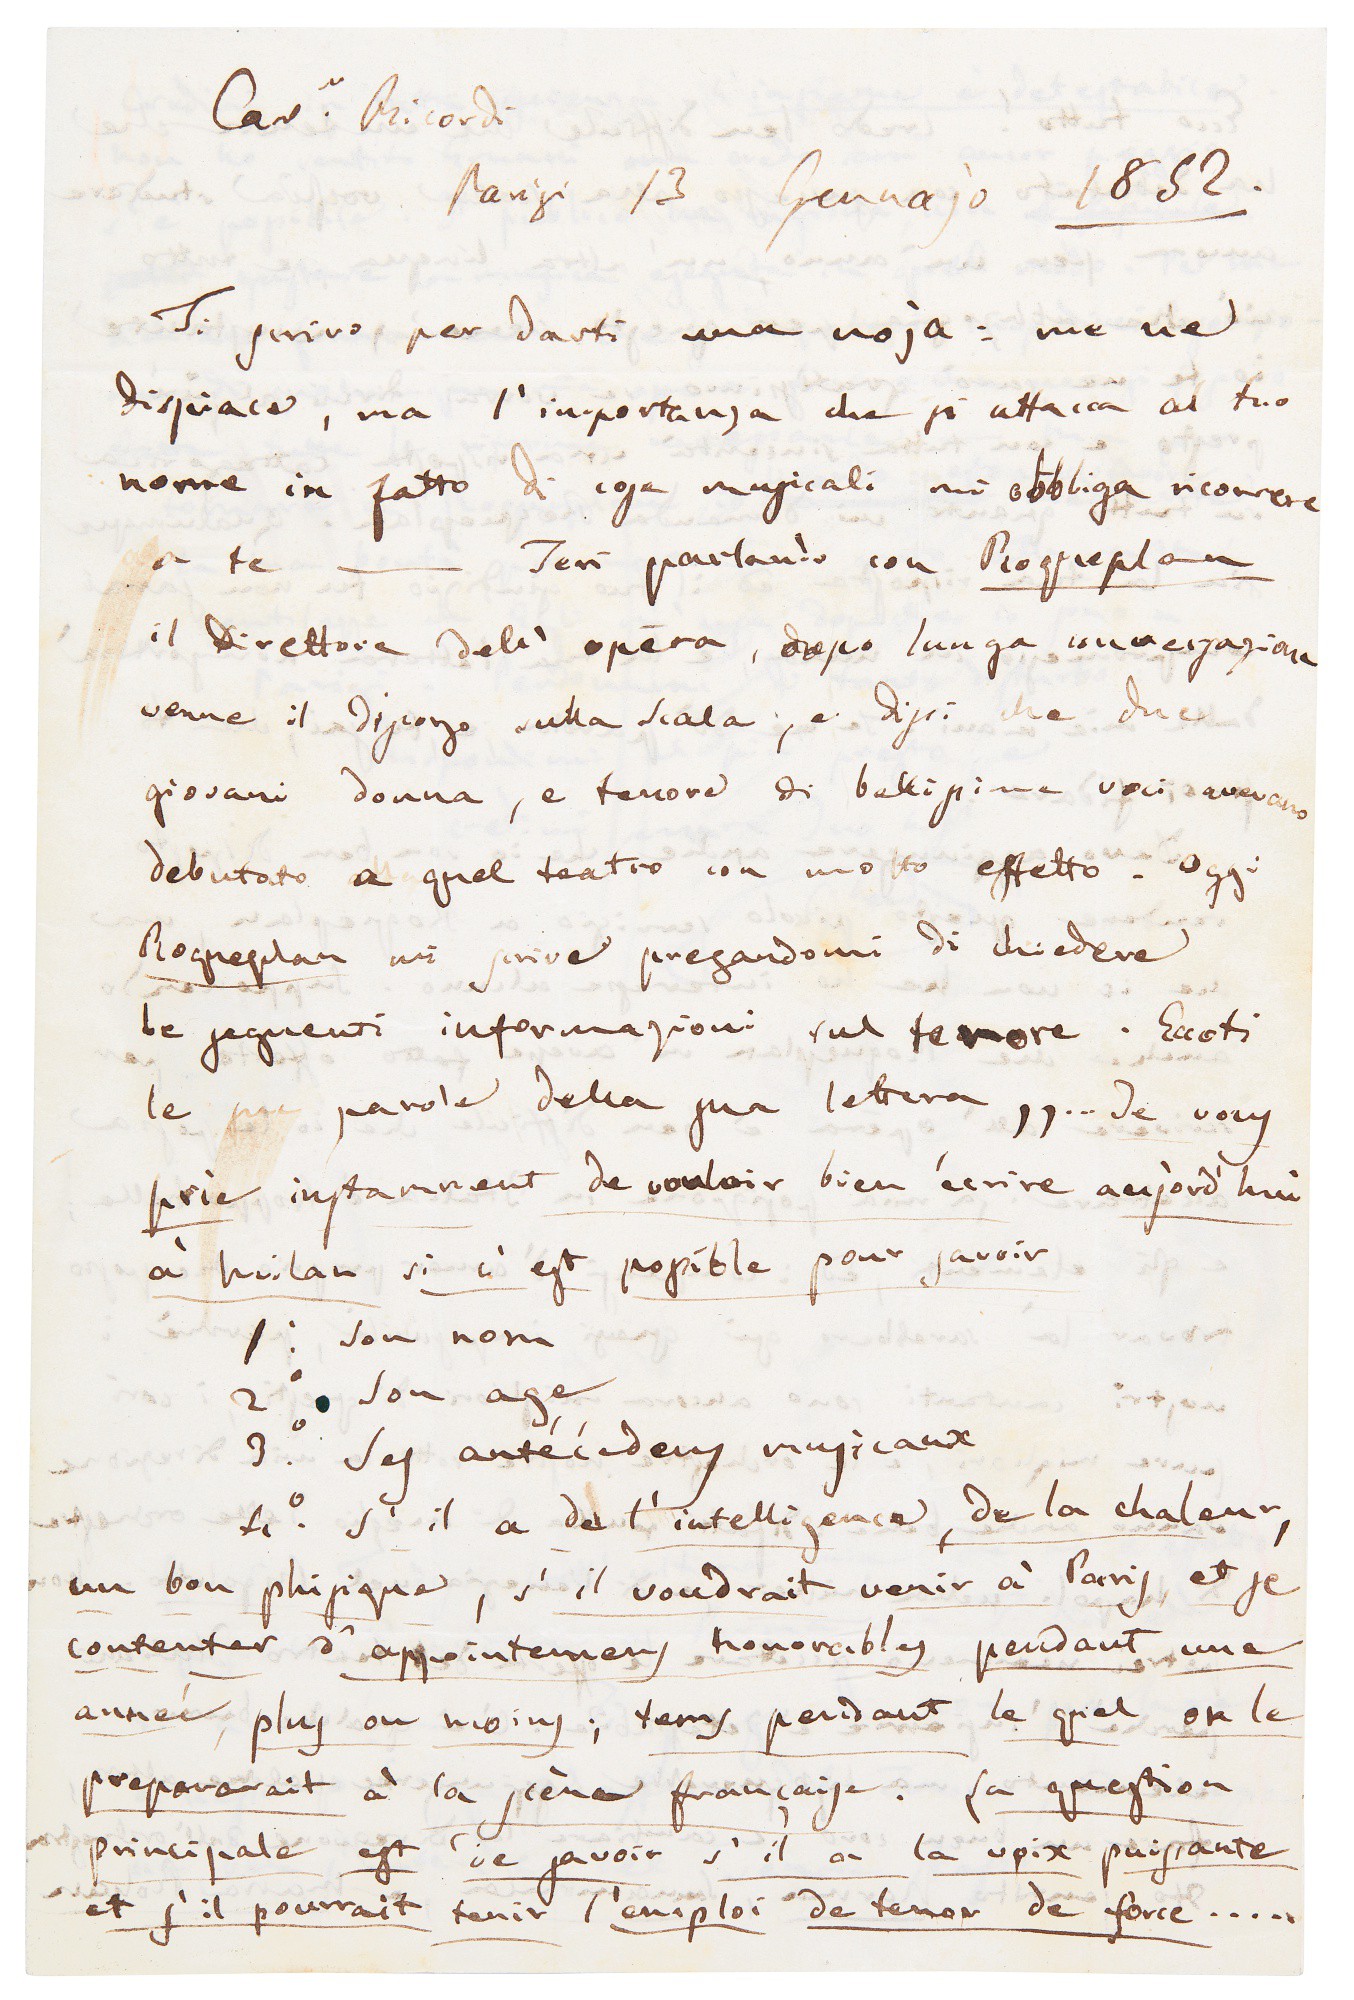 Car.º Ricordi
Parigi 13 Gennajo 1852.
Ti scrivo per darti una noja: me ne
dispiace, ma l'importanza che si attacca al tuo
nome in fatto di cose musicali mi obbliga ricorrere
a te —— Ieri parlando con Roqueplan
il Direttore dell' opéra, dopo lunga conversazione
venne il discorso sulla Scala, e dissi che due
giovani donna, e tenore di bellissime voci avevano
debutato a quel teatro con molto effetto. Oggi
Roqueplan mi scrive pregandomi di chiedere
le seguenti informazioni sul tenore. Eccoti
le parole della sua lettera ,,... Je vous
prie instamment de vouloir bien écrire aujord'hui
à Milan si c'est possible pour savoir
1º: Son nom
2º. Son age
3º. Ses antécédens musicaux
4º. S'il a de l'intelligence, de la chaleur,
un bon phisique, s'il voudrait venir à Paris, et se
contenter d'appointemens honorables pendant une
année, plus ou moins; tems pendant le quel on le
prepararait à la scène française. La question
principale est de savoir s'il a la voix puissante
et s'il pourrait tenir l'emploi de tenor de force .....